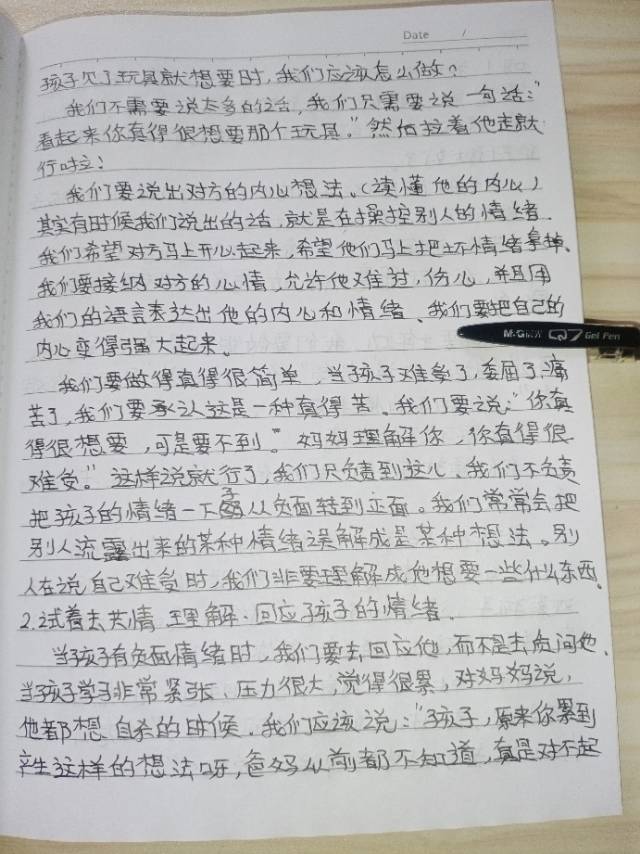 Date /
孩子欠了玩具就想要时,我们应该怎么做?
我们不需要说太多的话,我们只需要说一句话:"
看起来你真得很想要那个玩具。"然后拉着他走就
行啦!
我们要说出对方的内心想法。(读懂他的内心)
其实有时候我们说出的话,就是在操控别人的情绪.
我们希望对方马上开心起来,希望他们马上把坏情绪拿掉、
我们要接纳对方的心情,允许他难过,伤心,并且用
我们的语言表达出他的内心和情绪、我们要把自己的
内心变得强大起来。
M&G Q7 Gel Pen
我们要做得真得很简单,当孩子难受了,委屈了,痛
苦了,我们要承认这是一种真得苦、我们要说:"你真
得很想要,可是要不到。"妈妈理解你,你真得很
难受。"这样说就行了,我们只负责到这儿、我们不负责
把孩子的情绪一下子从负面转到正面。我们常常会把
别人流露出来的某种情绪误解成是某种想法。别
人在说自己难受时,我们非要理解成他想要一些什么东西。
2.试着去共情、理解、回应孩子的情绪.
当孩子有负面情绪时,我们要去回应他,而不是去质问他、
当孩子学习非常紧张、压力很大,觉得很累,对妈妈说,
他都想自杀的时候、我们应该说:"孩子,原来你累到
产生这样的想法呀,爸妈从前都不知道,真是对不起